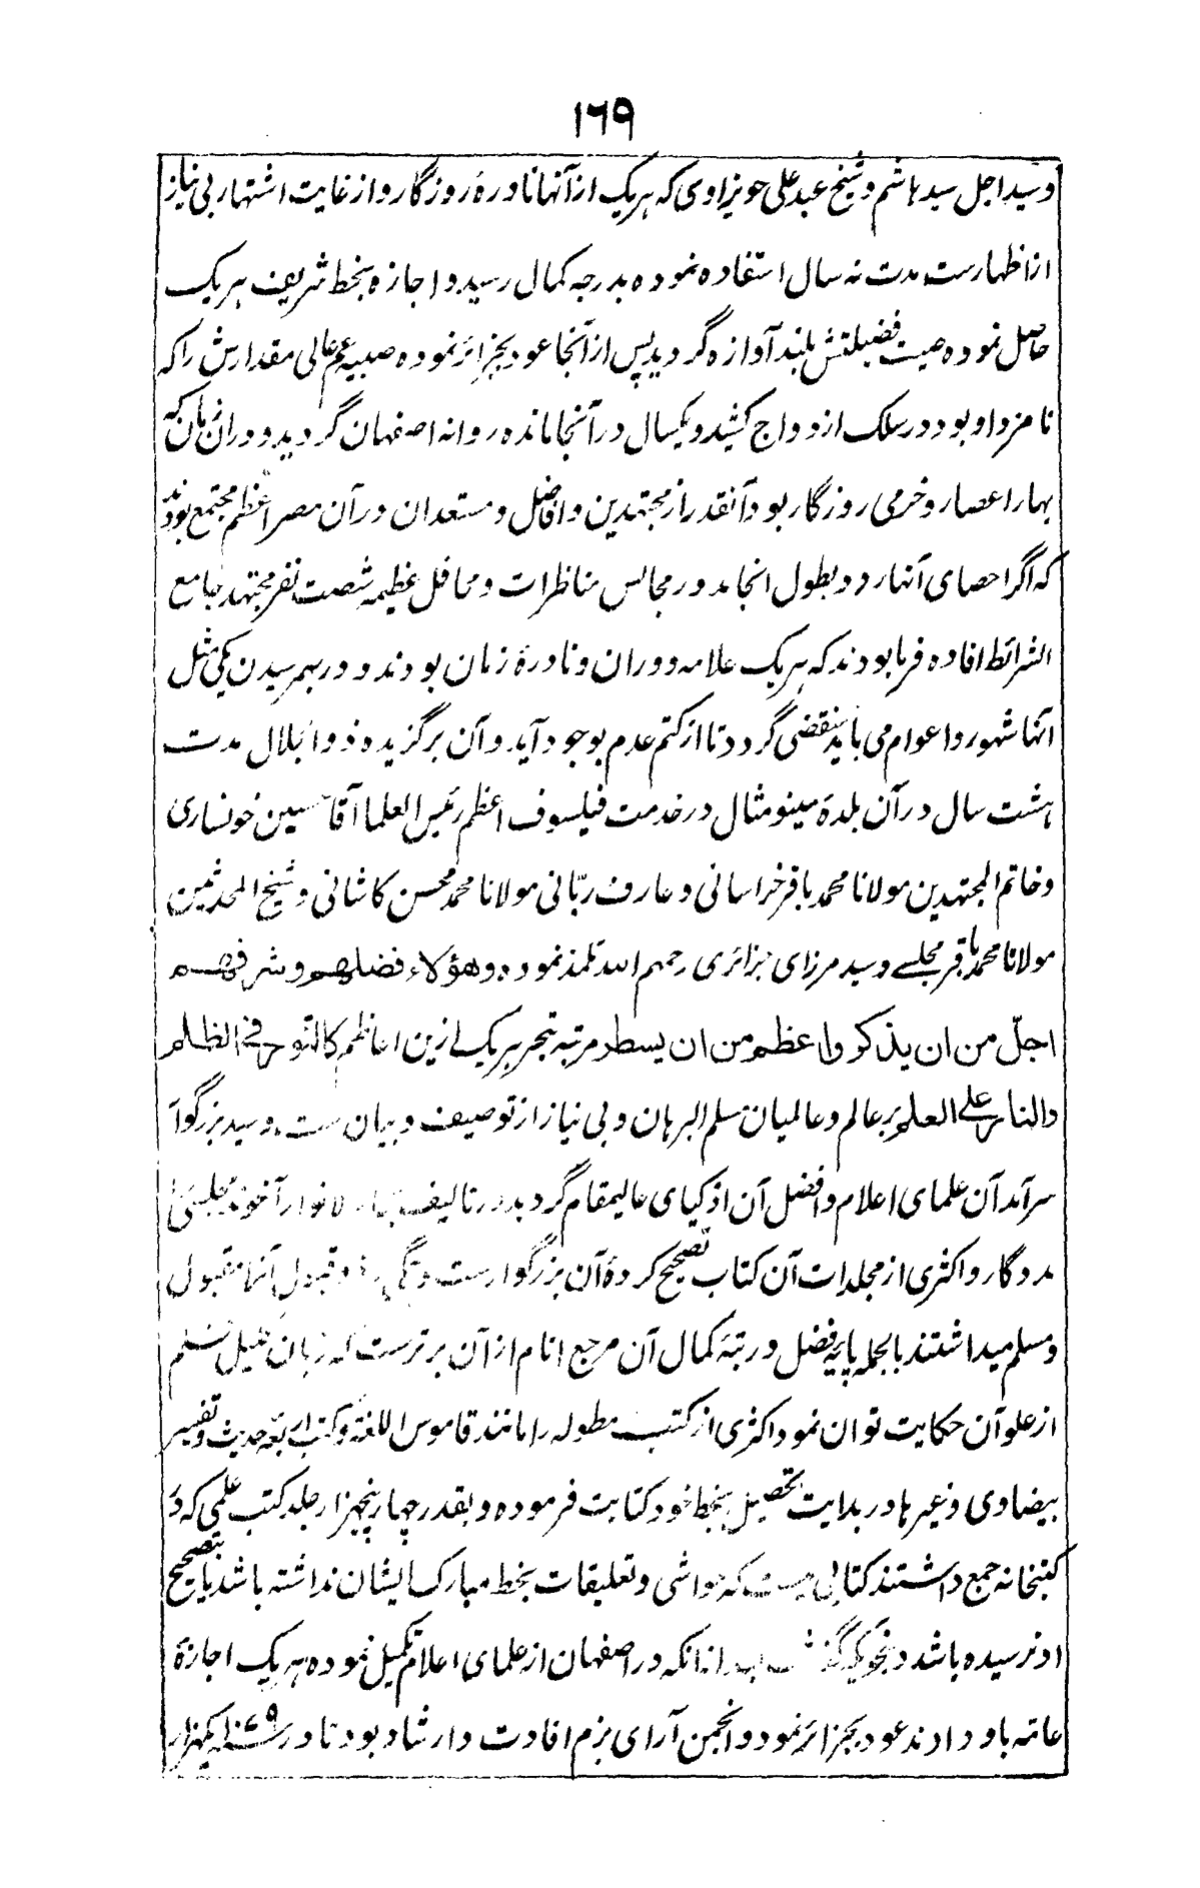 ۱۶۹
و سید اجل سید هاشم و شیخ عبد علی حویزاوی که هریک از آنها نادرهٔ روزگار و از غایت اشتهار بی نیاز
از اظهارست مدت نه سال استفاده نموده بدرجه کمال رسید و اجازه بخط شریف هریک
حاصل نموده صیت فضیلتش بلند آوازه گردید پس از آنجا عود بجزائر نموده صبیه عم عالی مقدارش را که
نامزد او بود در سلک ازدواج کشید و یکسال در آنجا مانده روانه اصفهان گردید و دران زمان که
بهار اعصار و خرمی روزگار بود آنقدر از مجتهدین و افاضل و مستعدان در آن مصر اعظم مجتمع بودند
که اگر احصای آنها رود بطول انجامد در مجالس مناظرات و محافل عظیمه شصت نفر مجتهد جامع
الشرائط افاده فرما بودند که هریک علامه دوران و نادرهٔ زمان بودند و در بهم رسیدن یکی مثل
آنها شهور و اعوام می باید منقضی گردد تا از کتم عدم بوجود آید و آن برگزیده ذوالجلال مدت
هشت سال در آن بلدهٔ مینو مثال در خدمت فیلسوف اعظم رئیس العلما آقا حسین خونساری
و خاتم المجتهدین مولانا محمد باقر خراسانی و عارف ربّانی مولانا محمد محسن کاشانی و شیخ المحدثین
مولانا محمد باقر مجلسے و سید مرزای جزائری رحمهم الله تلمذ نموده و هؤلاء فضلهم و شرفهم
اجلّ من ان یذکر و اعظم من ان یسطر مرتبه تبحر هریک ازین اعاظم کالنور فی الظلم
والنار علی العلم بر عالم و عالمیان مسلم البرهان و بی نیاز از توصیف و بیان ست و سید بزرگوار
سرآمد آن علمای اعلام و افضل آن اذکیای عالیمقام گردید در تالیف بحار الانوار آخوند مجلسی را
مددگار و اکثری از مجلدات آن کتاب تصحیح کردهٔ آن بزرگوارست و قبول آنها مقبول
و مسلم میداشتند بالجمله پایهٔ فضل و رتبهٔ کمال آن مرجع انام از آن برترست که زبان
از علو آن حکایت توان نمود اکثری از کتب مطوله را مانند قاموس اللغة و کتب اربعه حدیث و تفسیر
بیضاوی و غیرها در بدایت تحصیل بخط خود کتابت فرموده و بقدر چهار پنجهزار جلد کتب علمی که در
کتبخانه جمع داشتند کتابی نیست که حواشی و تعلیقات بخط مبارک ایشان نداشته باشد یا بتصحیح
او نرسیده باشد و بنحویکه گذشت بعد از آنکه در اصفهان از علمای اعلام تکمیل نموده هریک اجازهٔ
عامه باو دادند عود بجزائر نمود و انجمن آرای بزم افادت و ارشاد بود تا در ۱۰۷۹ سنه یکهزار